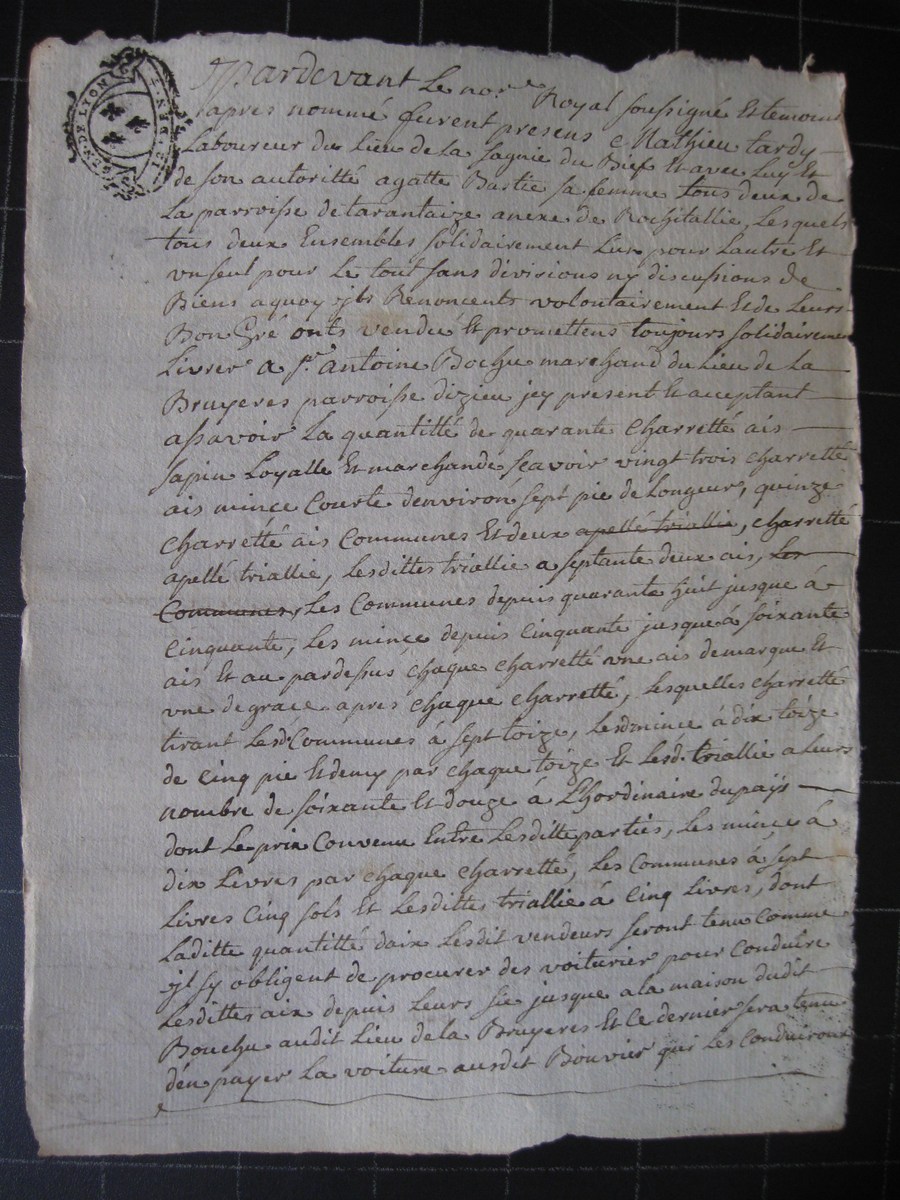 GEN. DE LYON
Pardevant Le nore Royal soussigné Et temoins
apres nommé furent presens Mathieu tardy
Laboureur du Lieu de La sagnie du Bief Et avec Luy Et
de son autoritté agatte Bartie sa femme tous deux de
La parroisse de tarantaize anexe de Rochitallie, Lesquels
tous deux Ensembles solidairement L'un pour Lautre Et
un seul pour Le tout sans divisions ny discussions de
Biens aquoy jls Renoncents volontairement Et de Leurs
Bon Gré onts vendu Et promettens toujours solidairement
Livrer a sr. antoine Bochu marchand du Lieu de La
Bruyeres parroisse dizieu jcy present Et acceptant
assavoir La quantitté de quarante charretté ais
sapin Loyalle Et marchande scavoir vingt trois charretté
ais mince Courte denviron sept pie de Longeur, quinze
charretté ais Communes Et deux apellé triallie, charretté
apellé triallie, Lesdittes triallie a septante deux ais, Les
Communes, Les Communes depuis quarante huit jusque à
Cinquante, Les mince depuis Cinquante jusque à soixante
ais Et au pardessus chaque charretté une ais demarque Et
une de grace apres chaque charretté, Lesquelles charretté
tirant Lesd. Communes à sept toize, Lesd mince à dix toize
de Cinq pie Et demy par chaque toize Et Lesd. triallie a Leurs
nombre de soixante Et douze à L'hordinaire du pays
dont Le prix Convenu Entre Lesditte parties, Les mince à
dix Livres par chaque charretté, Les Communes à sept
Livres Cinq sols Et Lesditte triallie à Cinq Livres, dont
Laditte quantitté daix Lesdit vendeurs seront tenu Comme
jl sy obligent de procurer des voiturier pour Conduire
Lesdittes aix depuis Leurs sie jusque a la maison dudit
Bouchu audit Lieu de la Bruyeres Et Ce dernier sera tenu
dén payer La voiture ausdit Bouvier qui Les Conduiront